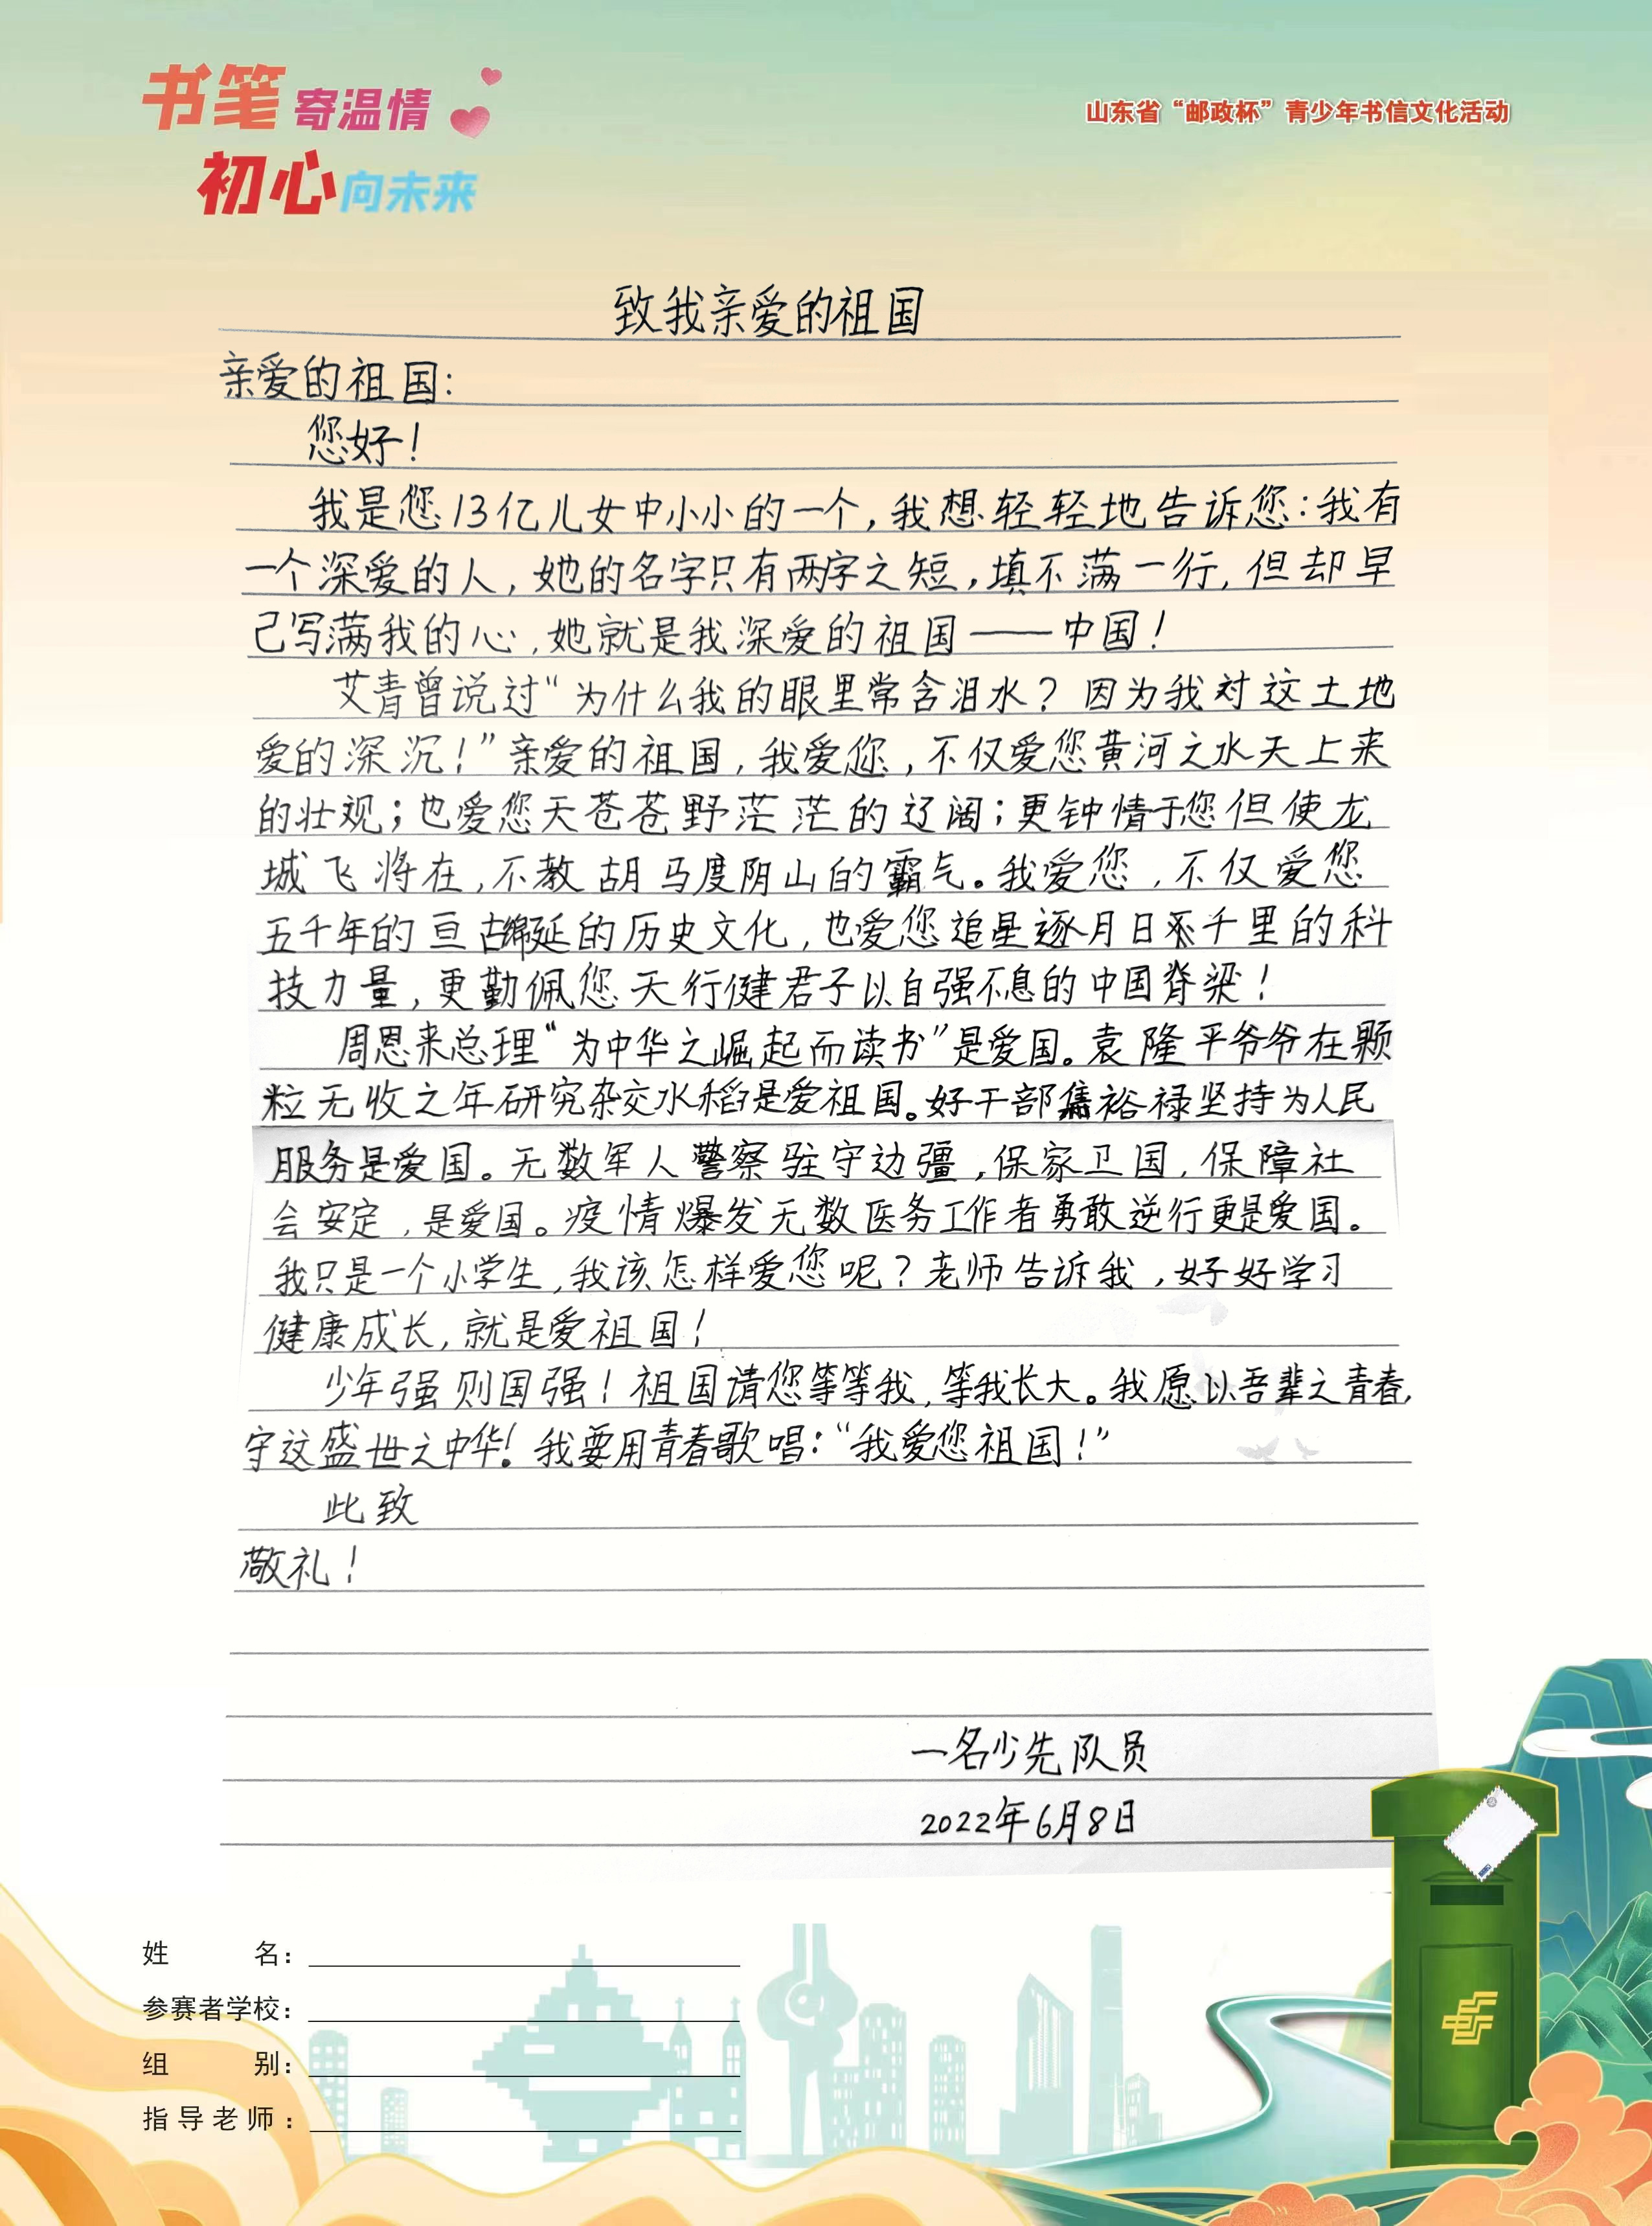 书笔寄温情
初心向未来
山东省“邮政杯”青少年书信文化活动
致我亲爱的祖国
亲爱的祖国：
您好！
我是您13亿儿女中小小的一个，我想轻轻地告诉您：我有
一个深爱的人，她的名字只有两字之短，填不满一行，但却早
己写满我的心，她就是我深爱的祖国——中国！
艾青曾说过“为什么我的眼里常含泪水？因为我对这土地
爱的深沉！”亲爱的祖国，我爱您，不仅爱您黄河之水天上来
的壮观；也爱您天苍苍野茫茫的辽阔；更钟情于您但使龙
城飞将在，不教胡马度阴山的霸气。我爱您，不仅爱您
五千年的亘古绵延的历史文化，也爱您追星逐月日千里的科
技力量，更勤佩您天行健君子以自强不息的中国脊梁！
周恩来总理“为中华之崛起而读书”是爱国。袁隆平爷爷在颗
粒无收之年研究杂交水稻是爱祖国。好干部焦裕禄坚持为人民
服务是爱国。无数军人警察驻守边疆，保家卫国，保障社
会安定，是爱国。疫情爆发无数医务工作者勇敢逆行更是爱国。
我只是一个小学生，我该怎样爱您呢？老师告诉我，好好学习
健康成长，就是爱祖国！
少年强则国强！祖国请您等等我，等我长大。我愿以吾辈之青春，
守这盛世之中华！我要用青春歌唱：“我爱您祖国！”
此致
敬礼！
一名少先队员
2022年6月8日
姓名：
参赛者学校：
组别：
指导老师：